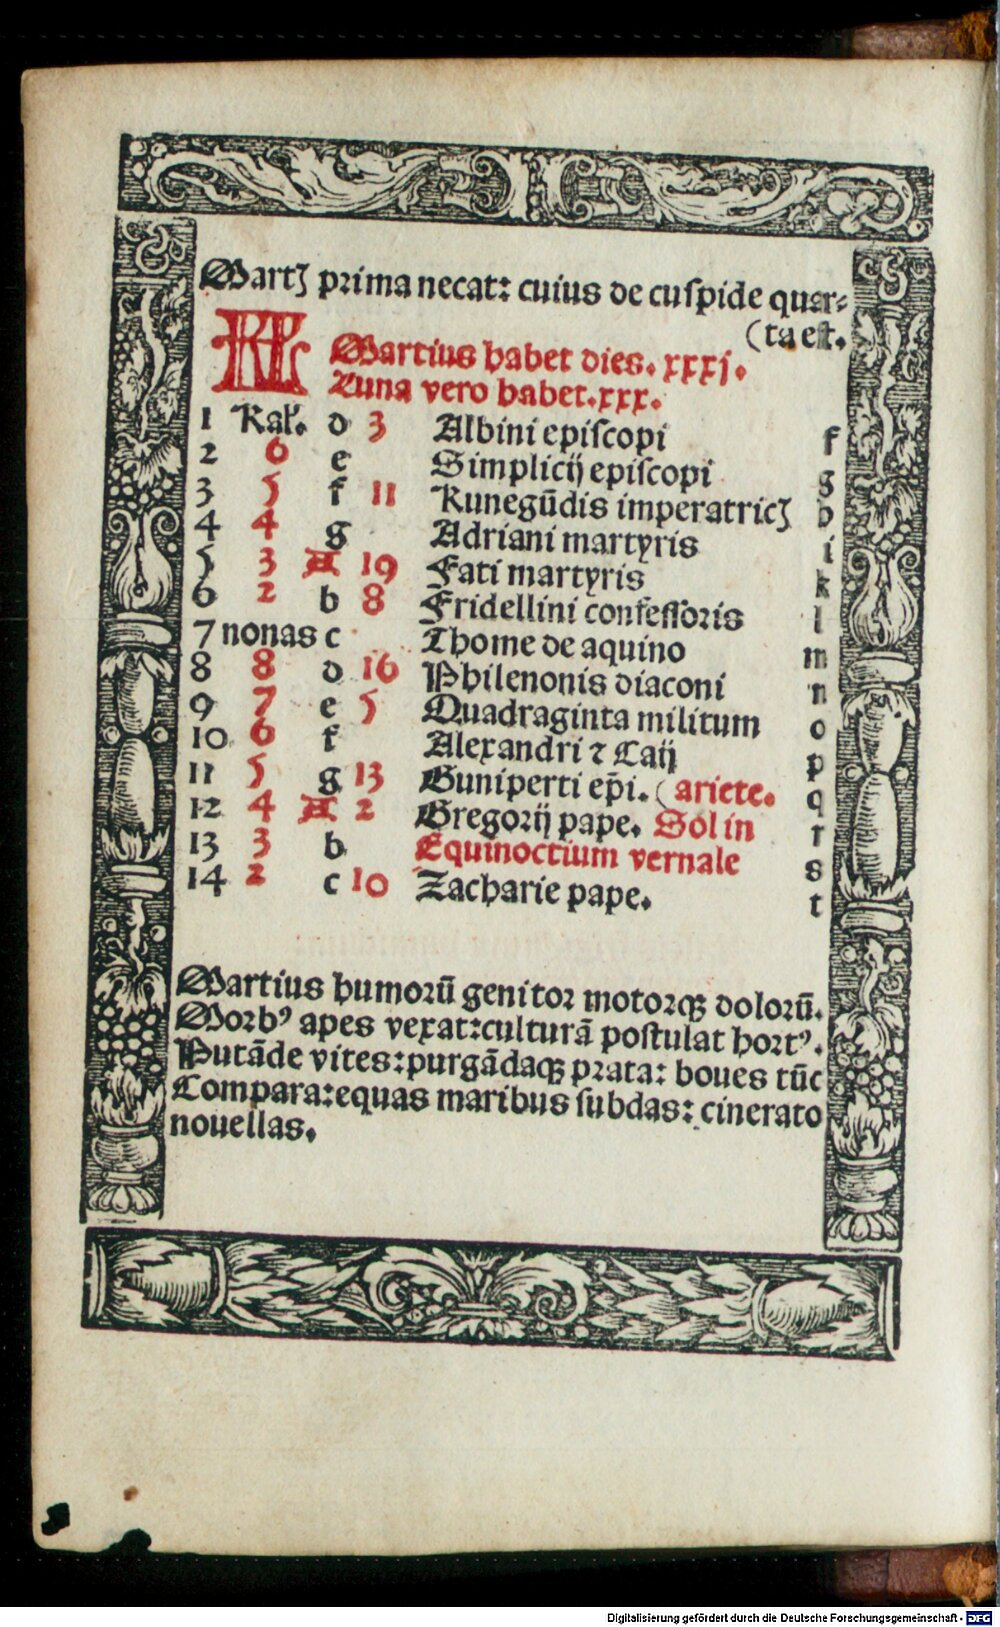 Martꝭ prima necat: cuius de cuspide quar-
(ta est.
KL Martius habet dies. xxxj.
Luna vero habet. xxx.
1 Kal̕. d 3 Albini episcopi f
2 6 e Simplicij episcopi g
3 5 f 11 Kunegūdis imperatricꝭ h
4 4 g Adriani martyris i
5 3 A 19 Fati martyris k
6 2 b 8 Fridellini confessoris l
7 nonas c Thome de aquino m
8 8 d 16 Philenonis diaconi n
9 7 e 5 Quadraginta militum o
10 6 f Alexandri ⁊ Caij p
11 5 g 13 Guniperti ep̄i. (ariete. q
12 4 A 2 Gregorij pape. Sol in r
13 3 b Equinoctium vernale s
14 2 c 10 Zacharie pape. t
Martius humorū genitor motorqꝫ dolorū.
Morbꝰ apes vexat: culturā postulat hortꝰ.
Putāde vites: purgādaqꝫ prata: boues tūc
Compara: equas maribus subdas: cinerato
nouellas.
Digitalisierung gefördert durch die Deutsche Forschungsgemeinschaft - DFG